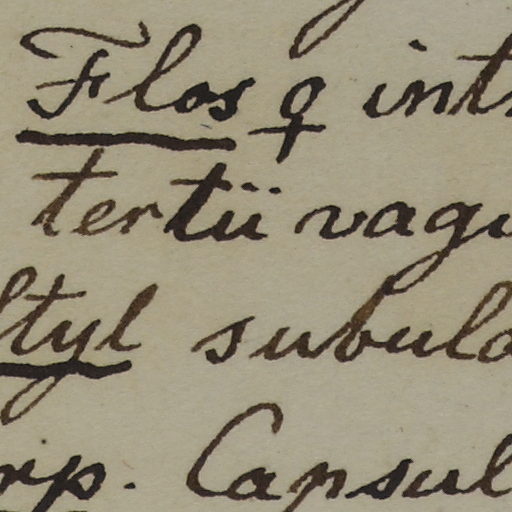 Flos ♀ int
tertii vagi
Styl subula
rp. Capsul